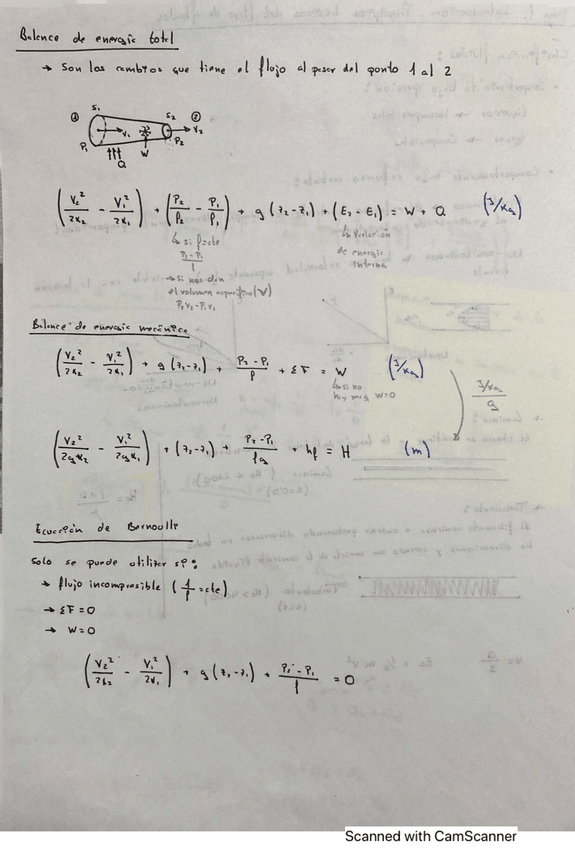 Balance de energía total
→ Son los cambios que tiene el flujo al pasar del ponto 1 al 2
① S₁ S₂ ②
P₁ V₁ W P₂ V₂
Q
(V₂²/2α₂ - V₁²/2α₁) + (P₂/ρ₂ - P₁/ρ₁) + g(z₂-z₁) + (E₂ - E₁) = W + Q (J/Kg)
↳ si ρ=cte
(P₂-P₁)/ρ
↳ Variación
de energía
interna
→ si nos dan
el volumen específico (V)
P₂V₂-P₁V₁
Balance de energía mecánica
(V₂²/2α₂ - V₁²/2α₁) + g(z₂-z₁) + (P₂-P₁)/ρ + ΣF = W (J/Kg)
↳ si no
hay maq W=0
(J/Kg)/g
(V₂²/2gα₂ - V₁²/2gα₁) + (z₂-z₁) + (P₂-P₁)/ρg + hf = H (m)
Ecuación de Bernoulli
Solo se puede utilizar si:
→ flujo incompresible (ρ=cte)
→ ΣF=0
→ W=0
(V₂²/2α₂ - V₁²/2α₁) + g(z₂-z₁) + (P₂-P₁)/ρ = 0
Scanned with CamScanner